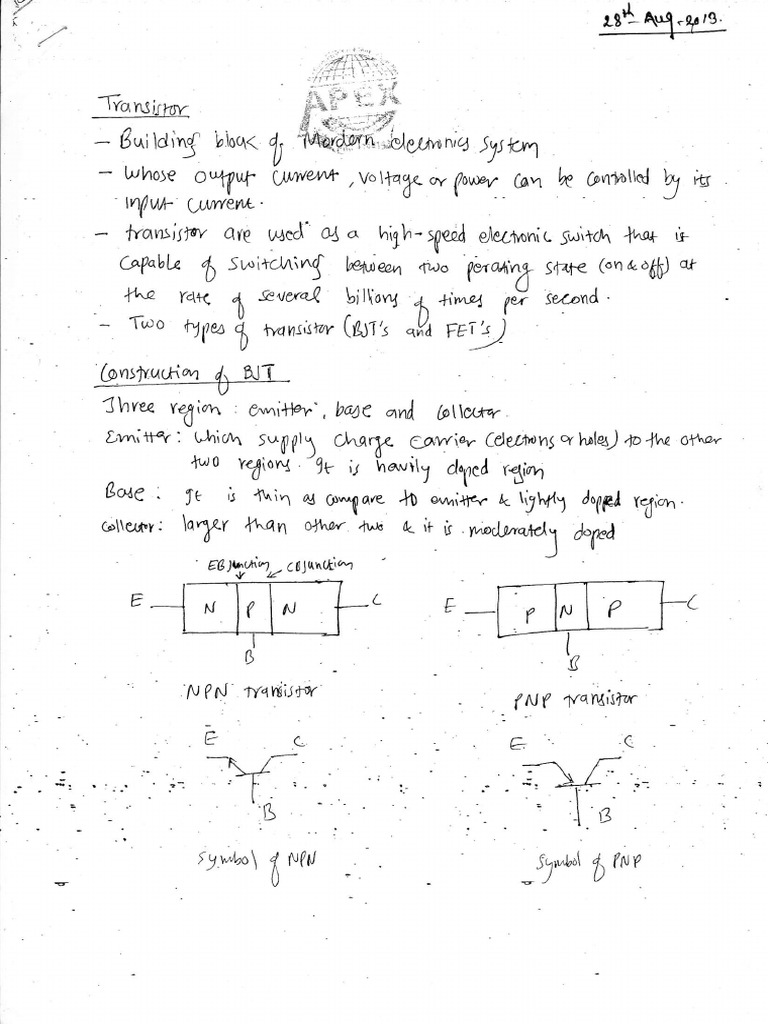 28th Aug-2013.
APEX
Transistor
- Building block of Mordern electronics system
- whose output current, voltage or power can be controlled by its
input current.
- transistor are used as a high-speed electronic switch that is
capable of switching between two perating state (on & off) at
the rate of several billions of times per second.
- Two types of transistor (BJT's and FET's)
Construction of BJT
Three region : emitter, base and collector
Emitter : which supply charge carrier (electrons or holes) to the other
two regions. It is havily doped region
Base : It is thin as compare to emitter & lightly dopped region.
Collector: larger than other two & it is moderately doped
EB junction CB junction
E N P N C
B
E P N P C
B
NPN transistor
PNP transistor
E C
B
E C
B
symbol of NPN
symbol of PNP